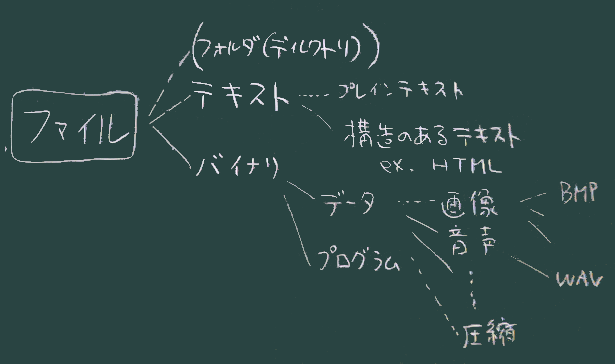 (フォルダ(ディレクトリ))
ファイル
テキスト プレインテキスト
構造のあるテキスト
ex. HTML
バイナリ
データ 画像 BMP
音声
プログラム
WAV
圧縮